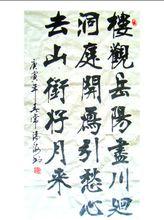 樓觀岳陽盡川迥
洞庭開鴈引愁心
去山銜好月来
庚寅年